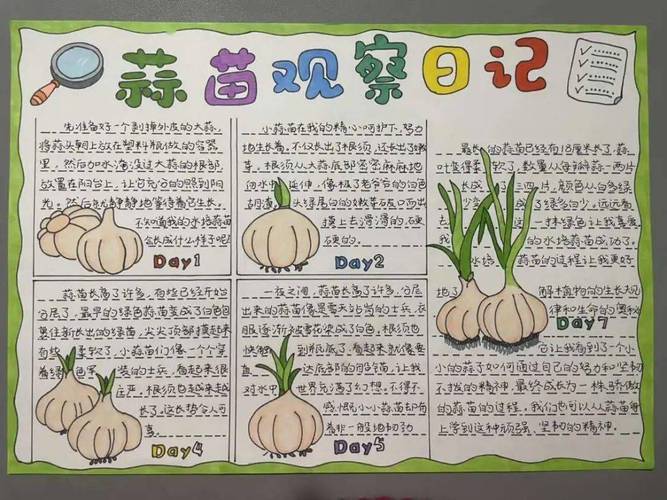 蒜苗观察日记
先准备好一个剥掉外皮的大蒜,
将蒜头朝上放在塑料瓶做的容器
里,然后加水淹没过大蒜的根部,
放置在阳台上,让它充分的照到阳
光。然后就静静地等待着它生长。
不知道我的水培蒜苗
会长成什么样子呢?
Day1
小蒜苗在我的精心呵护下,努力
地生长着。不仅长出了根须,还长出了嫩
芽。根须从大蒜底部密密麻麻地
向水中延伸,像极了老爷爷的白色
胡须。头绿尾白的嫩芽破口而出
摸上去滑滑的、硬
硬的。
Day2
蒜苗长高了许多,有些已经开始
分层了。最早的绿色蒜苗变成了白色包
裹住新长出的绿苗,尖尖顶部摸起来
有些柔软了。小蒜苗们像一个个穿
着绿色军装的士兵,看起来很
庄严。根须也越来越
长了。这长势令人可
喜。
Day4
一夜之间,蒜苗长高了许多,分层
出来的蒜苗像是雪天站岗的士兵,衣
服逐渐被雪花染成了白色。根须也
快触到瓶底了。看起来就像要
直达底部的降落伞,让我
对水中世界充满了幻想。不得不
感慨小小蒜苗却有
着非一般地韧劲
Day5
最长的蒜苗已经有18厘米长了,蒜
叶变得柔软了,数量从每瓣蒜一两片
长成三四片,颜色从白多绿
少变成了绿多白少,远远看
去这一抹绿色让我喜爱。
我的水培蒜苗成功了。
培蒜苗的过程让我更好
地了解植物的生长规
律和生命的奥秘
Day7
它让我看到了一个小
小的蒜子如何通过自己的努力和坚韧
不拔的精神,最终成长为一株骄傲
的蒜苗的过程,我们也可以从蒜苗身
上学到这种顽强、坚韧的精神。